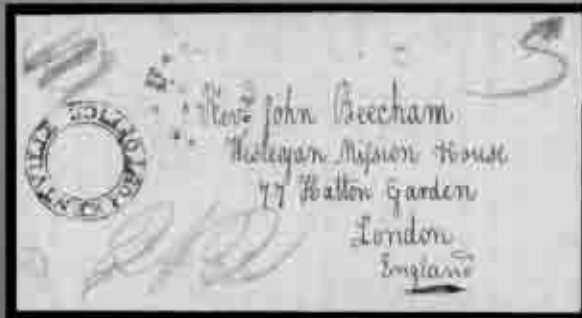 Revd. John Beecham
Wesleyan Mission House
77 Hatton Garden
London
England